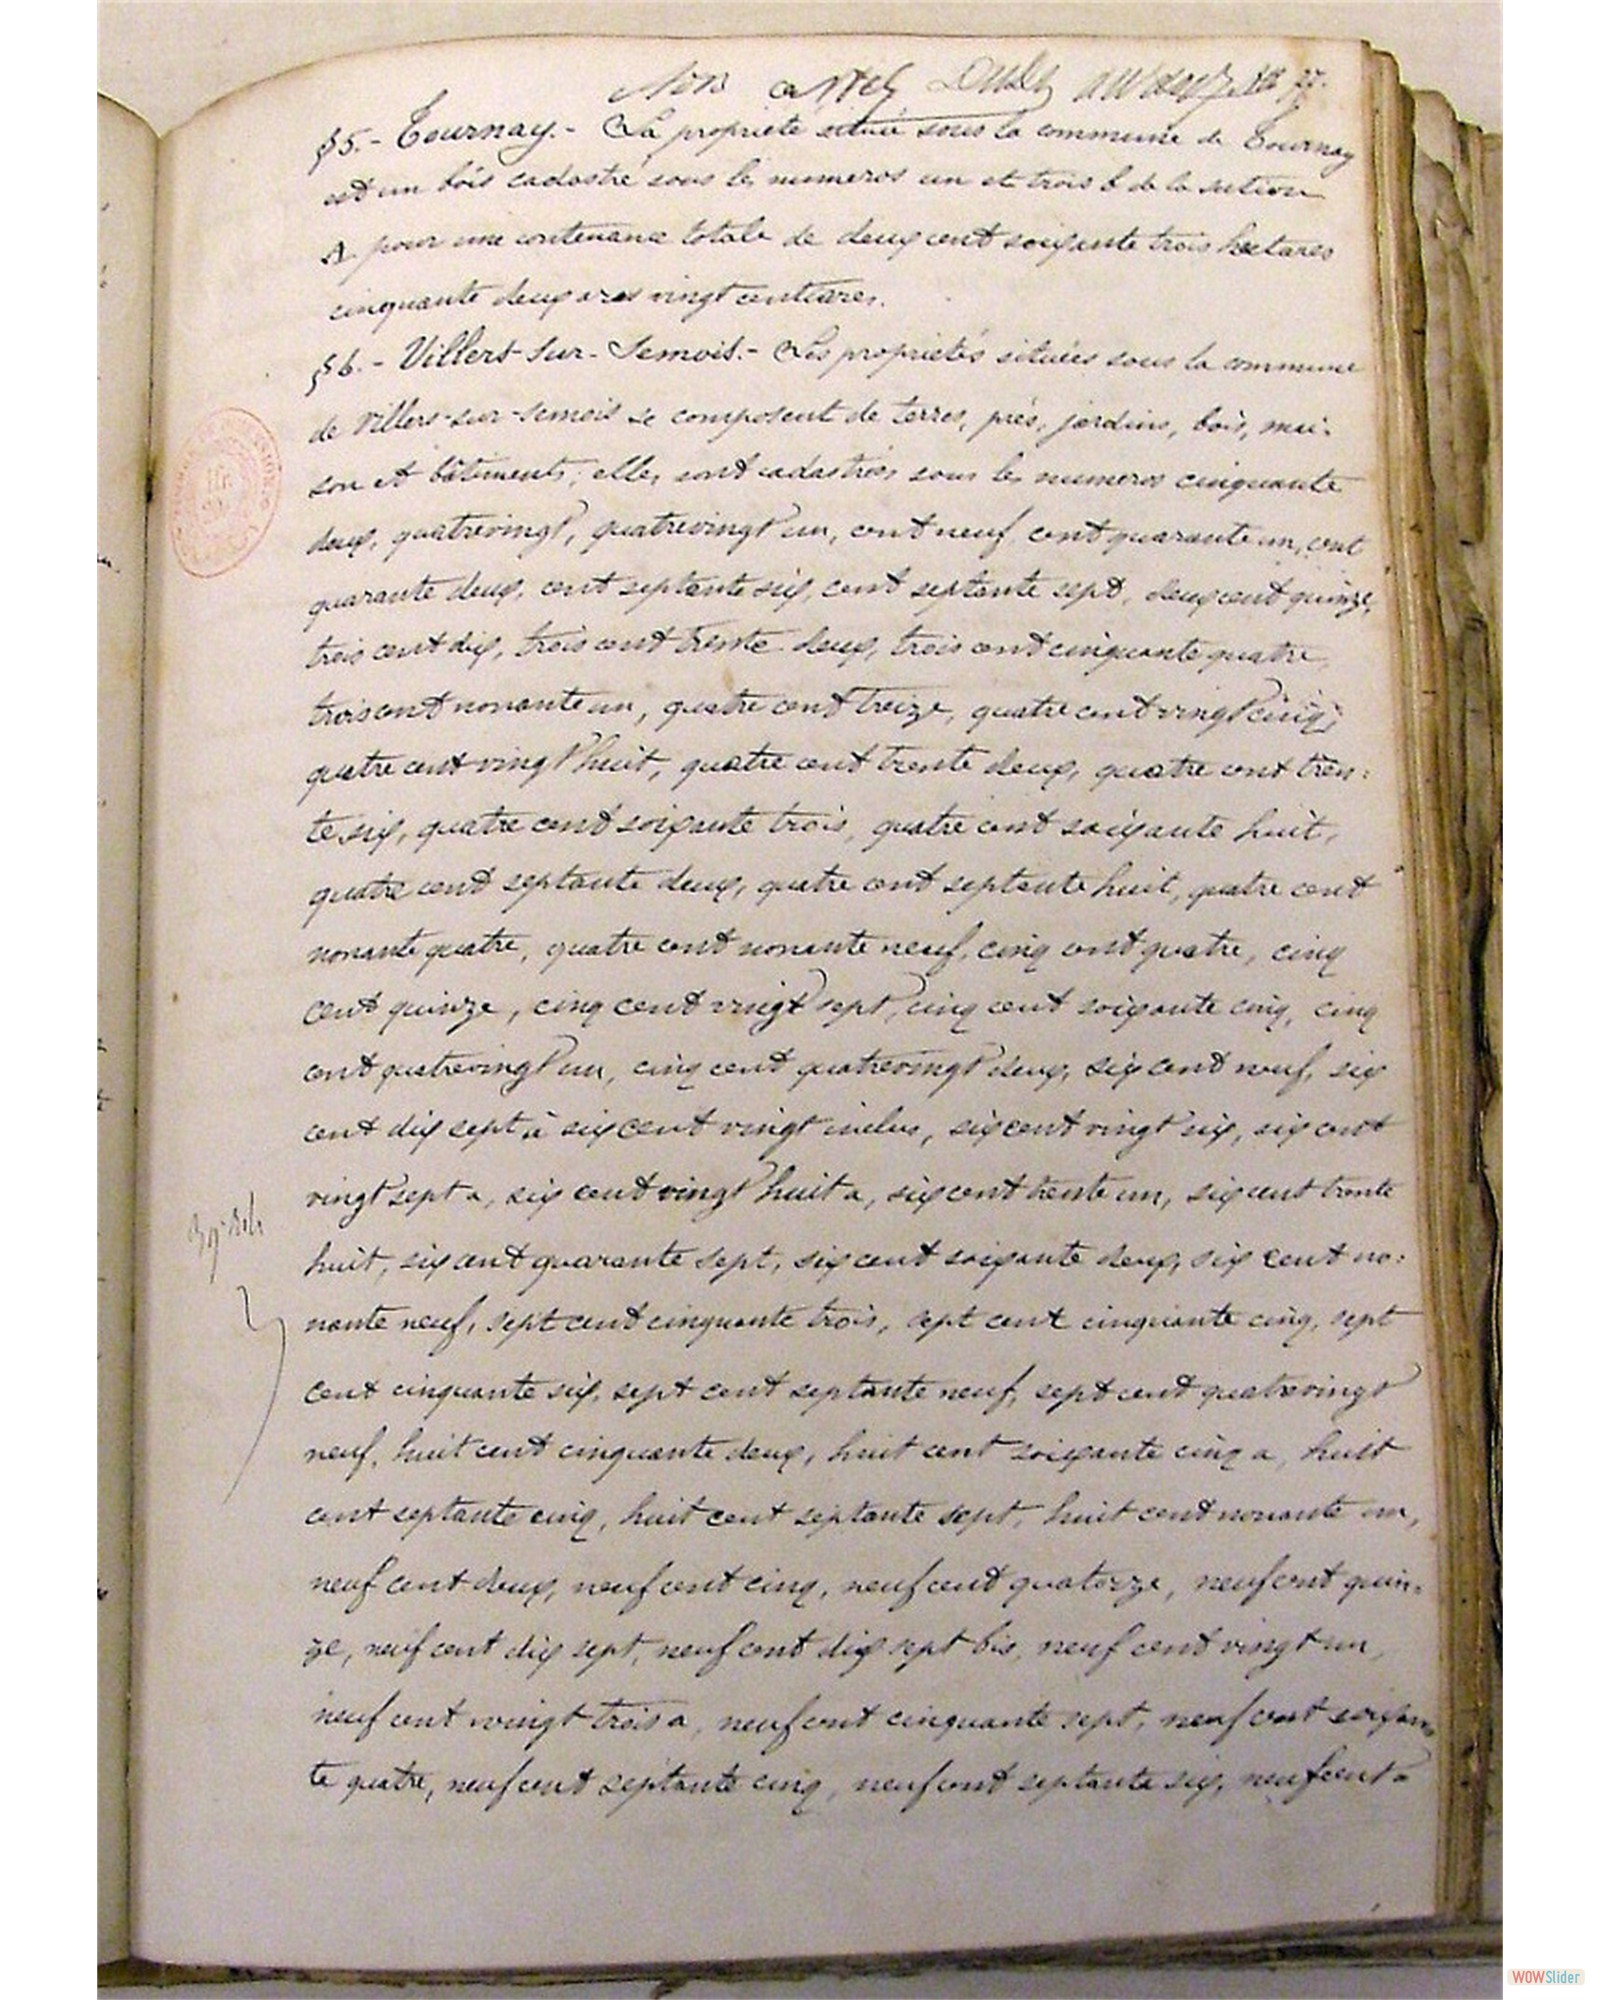 §5.- Tournay.- La propriété située sous la commune de Tournay
est un bois cadastré sous les numéros un et trois b de la section
A pour une contenance totale de deux cent soixante trois hectares
cinquante deux ares vingt centiares.
§6.- Villers-sur-Semois.- Les propriétés situées sous la commune
de Villers-sur-Semois se composent de terres, prés, jardins, bois, mai-
son et bâtiments; elles sont cadastrées sous les numéros cinquante
deux, quatrevingt, quatrevingt un, cent neuf, cent quarante un, cent
quarante deux, cent septante six, cent septante sept, deux cent quinze,
trois cent dix, trois cent trente deux, trois cent cinquante quatre,
trois cent nonante un, quatre cent treize, quatre cent vingt cinq,
quatre cent vingt huit, quatre cent trente deux, quatre cent tren:
te six, quatre cent soixante trois, quatre cent soixante huit,
quatre cent septante deux, quatre cent septante huit, quatre cent
nonante quatre, quatre cent nonante neuf, cinq cent quatre, cinq
cent quinze, cinq cent vingt sept, cinq cent soixante cinq, cinq
cent quatrevingt un, cinq cent quatrevingt deux, six cent neuf, six
cent dix sept à six cent vingt inclus, six cent vingt six, six cent
vingt sept a, six cent vingt huit a, six cent trente un, six cent trente
huit, six cent quarante sept, six cent soixante deux, six cent no:
nante neuf, sept cent cinquante trois, sept cent cinquante cinq, sept
cent cinquante six, sept cent septante neuf, sept cent quatrevingt
neuf, huit cent cinquante deux, huit cent soixante cinq a, huit
cent septante cinq, huit cent septante sept, huit cent nonante un,
neuf cent deux, neuf cent cinq, neuf cent quatorze, neuf cent quin:
ze, neuf cent dix sept, neuf cent dix sept bis, neuf cent vingt un,
neuf cent vingt trois a, neuf cent cinquante sept, neuf cent soixan
te quatre, neuf cent septante cinq, neuf cent septante six, neuf cent
WOWSlider